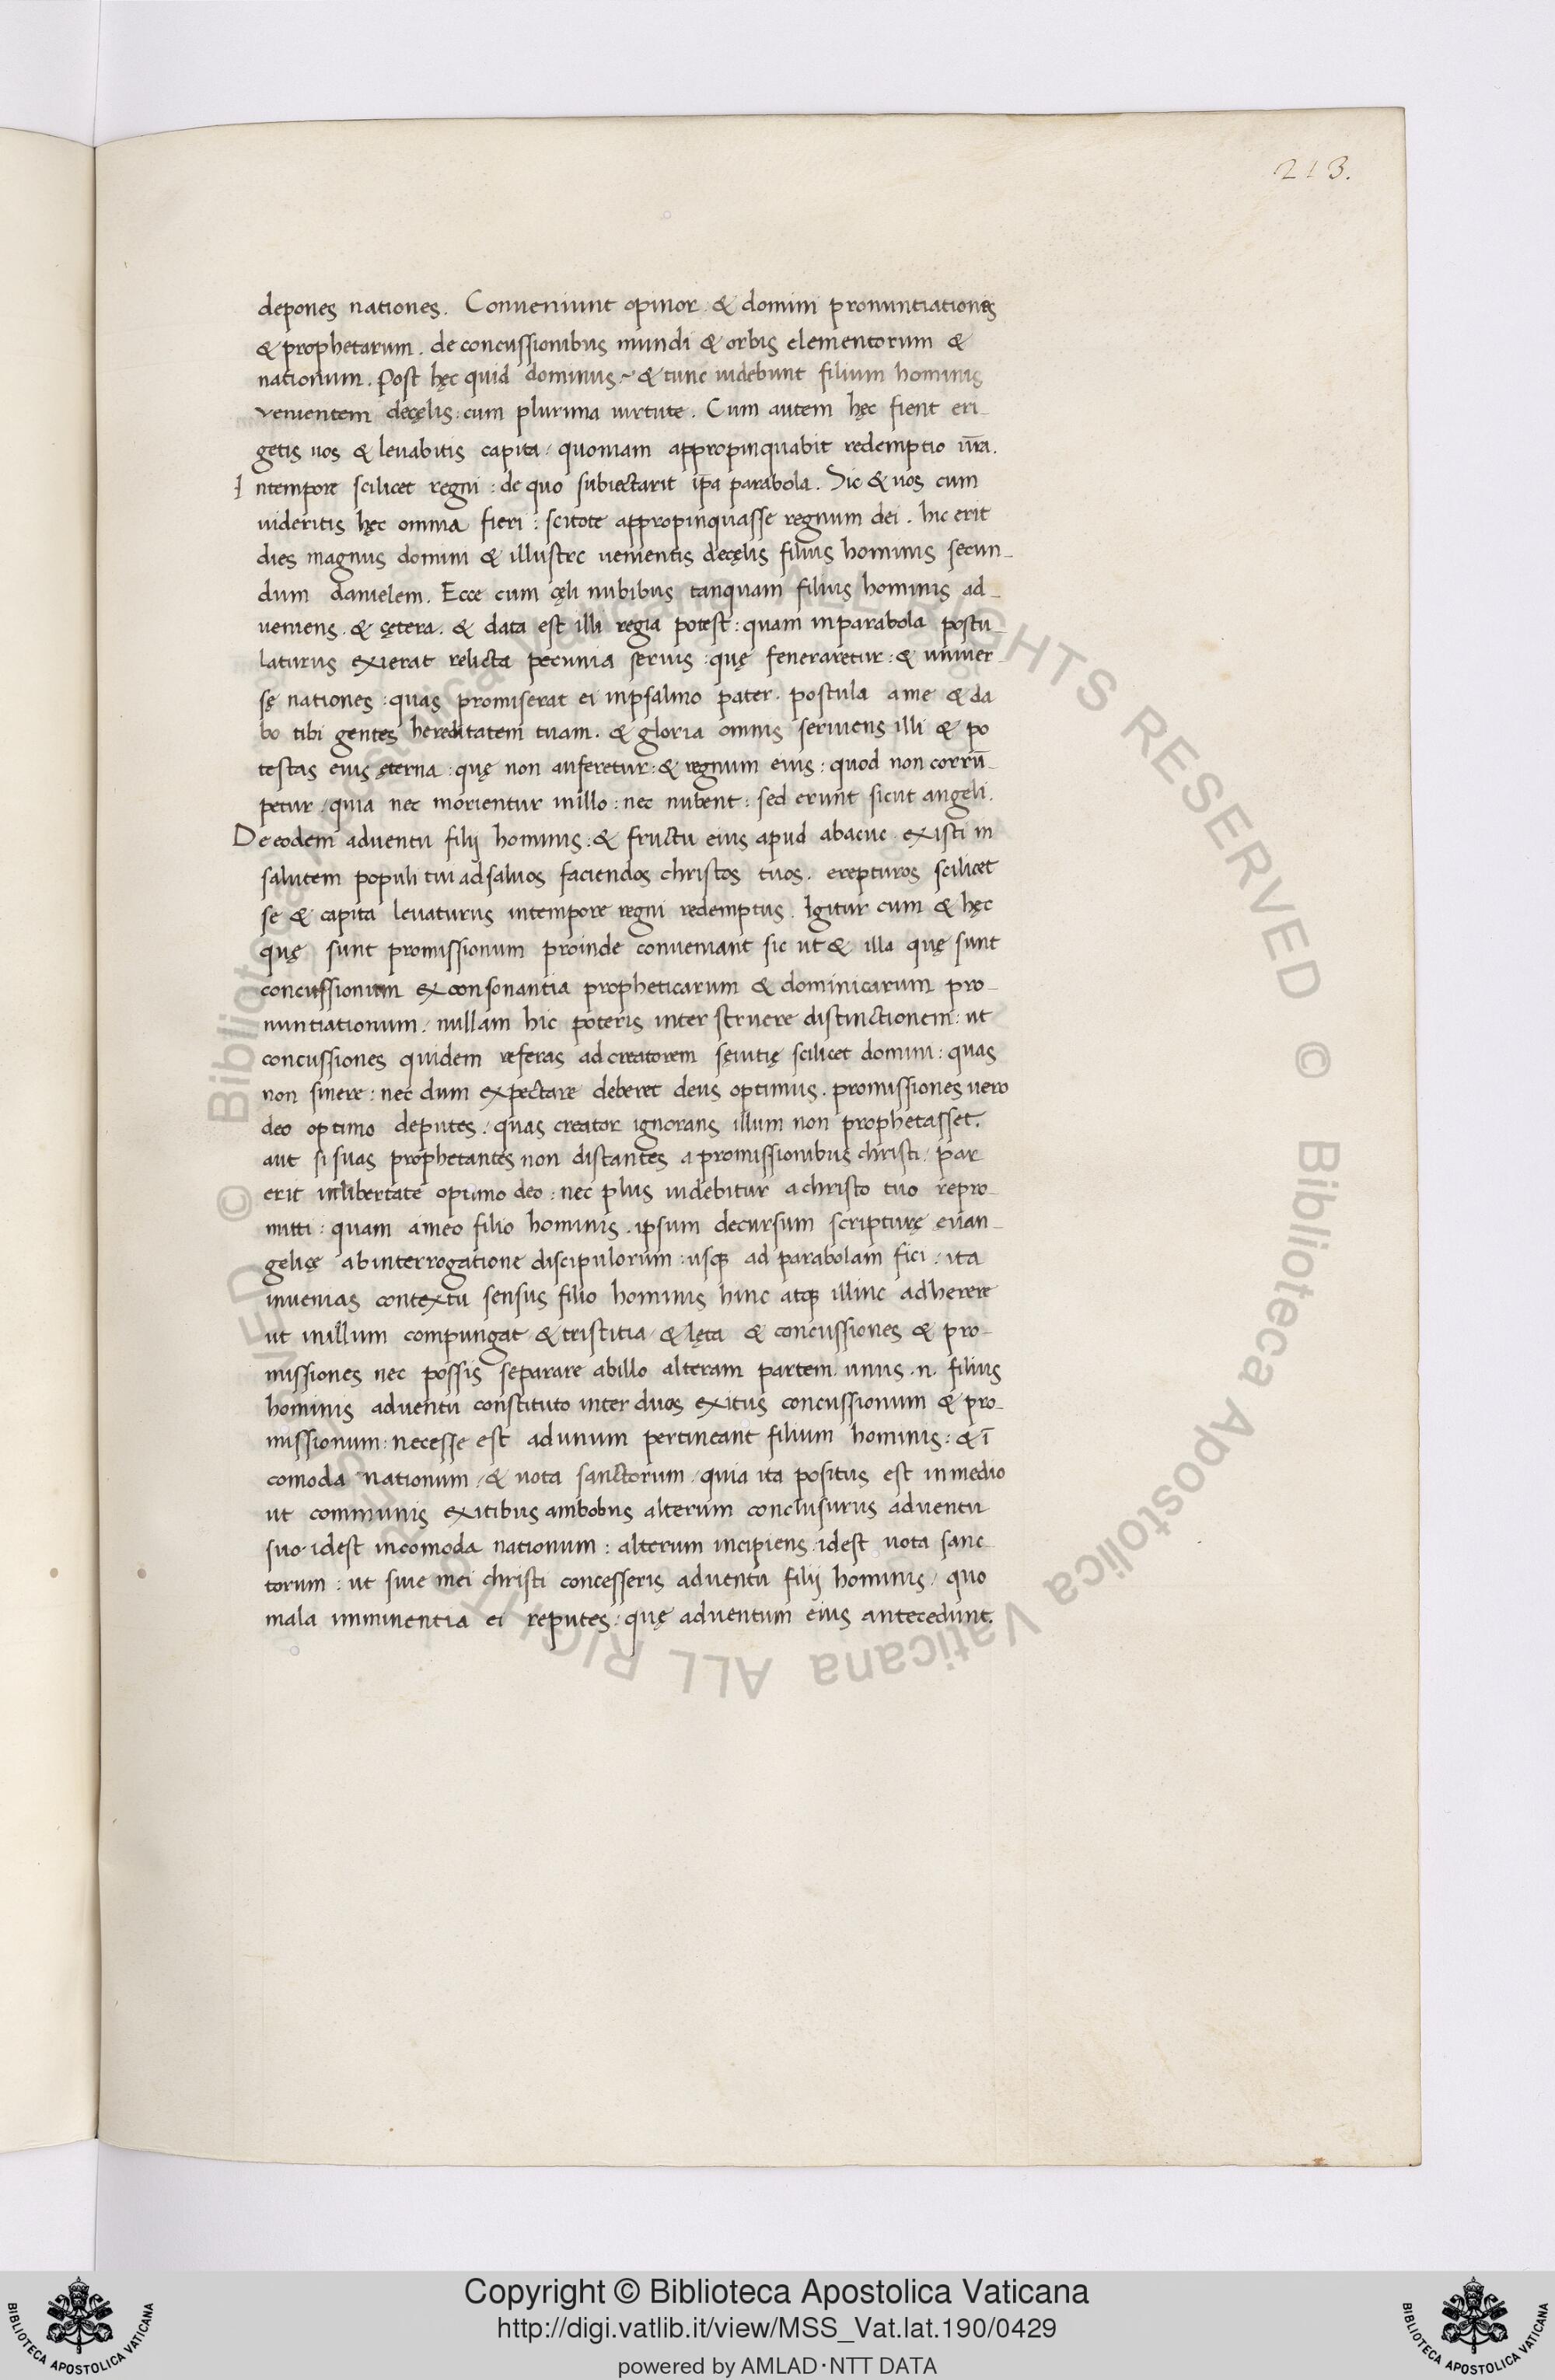 213.
depones nationes. Conueniunt opinor. & domini pronuntiationes
& prophetarum. de concussionibus mundi & orbis elementorum &
nationum. Post hęc quid dominus~ & tunc uidebunt filium hominis
venientem decęlis: cum plurima uirtute. Cum autem hęc fient eri-
getis uos & leuabitis capita/ quoniam appropinquabit redemptio ur̄a.
Intempore scilicet regni: de quo subiectarit ip̄a parabola. Sic & uos cum
uideritis hęc omnia fieri: scitote appropinquasse regnum dei. hic erit
dies magnus domini & illustre uenientis decęlis filius hominis secun-
dum danielem. Ecce cum cęli nubibus tanquam filius hominis ad-
ueniens. & çetera. & data est illi regia potest: quam inparabola postu-
laturus exierat relicta pecunia seruis: quę feneraretur: & uniuer-
sę nationes: quas promiserat ei inpsalmo pater. postula ame & da
bo tibi gentes hereditatem tuam. & gloria omnis seruiens illi & po
testas eius ęterna: quę non auferetur: & regnum eius: quod non corrū-
petur/ quia nec morientur inillo: nec nubent: sed erunt sicut angeli.
De eodem aduentu filij hominis: & fructu eius apud abacuc. existi in
salutem populi tui adsaluos faciendos christos tuos. erepturos scilicet
se & capita leuaturus intempore regni redemptus. Igitur cum & hęc
quę sunt promissionum proinde conueniant sic ut & illa quę sunt
concussionum exconsonantia propheticarum & dominicarum pro-
nuntiationum/ nullam hic poteris inter struere distinctionem: ut
concussiones quidem referas ad creatorem sęuitię scilicet domini: quas
non sinere: nec dum expectare deberet deus optimus. promissiones uero
deo optimo deputes. quas creator ignorans illum non prophetasset.
aut si suas prophetantes non distantes a promissionibus christi/ par
erit inlibertate optimo deo: nec plus uidebitur achristo tuo repro-
mitti: quam ameo filio hominis. ipsum decursum scripturę euan-
gelicę abinterrogatione discipulorum: usq; ad parabolam fici/ ita
inuenias contextu sensus filio hominis hinc atq; illinc adherere
ut inillum compungat & tristitia & lęta & concussiones & pro-
missiones nec possis separare abillo alteram partem. unus .n. filius
hominis aduentu constituto inter duos exitus concussionum & pro-
missionum: necesse est adunum pertineant filium hominis: & ī
comoda nationum/ & uota sanctorum/ quia ita positus est inmedio
ut communis exitibus ambobus alterum conclusurus aduentu
suo. idest incomoda nationum: alterum incipiens. idest uota sanc
torum: ut siue mei christi concesseris aduentu filij hominis/ quo
mala imminentia ei reputes: quę aduentum eius antecedunt.
© Biblioteca Apostolica Vaticana ALL RIGHTS RESERVED
© Biblioteca Apostolica Vaticana ALL RIGHTS RESERVED
BIBLIOTECA APOSTOLICA VATICANA
Copyright © Biblioteca Apostolica Vaticana
http://digi.vatlib.it/view/MSS_Vat.lat.190/0429
powered by AMLAD·NTT DATA
BIBLIOTECA APOSTOLICA VATICANA